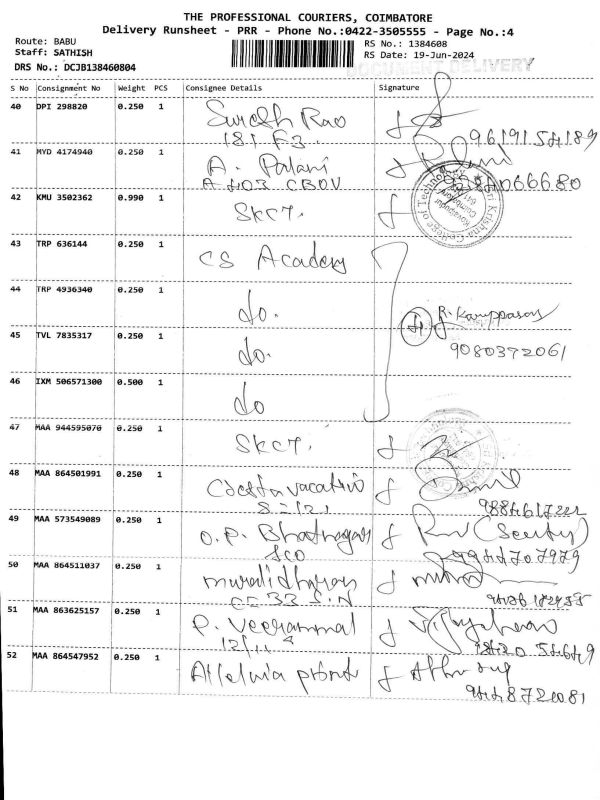 THE PROFESSIONAL COURIERS, COIMBATORE
Delivery Runsheet - PRR - Phone No.:0422-3505555 - Page No.:4
Route: BABU
RS No.: 1384608
Staff: SATHISH
RS Date: 19-Jun-2024
DRS No.: DCJB138460804
DOCUMENT DELIVERY
S No Consignment No Weight PCS Consignee Details Signature
40 DPI 298820 0.250 1 Suresh Rao
181 F3 9619154189
41 MYD 4174940 0.250 1 A. Palani
A 403 CBOV 9384066680
42 KMU 3502362 0.990 1 SKCT.
43 TRP 636144 0.250 1 CS Academy
44 TRP 4936340 0.250 1 do.
R. Karuppasamy
45 TVL 7835317 0.250 1 do.
9080372061
46 IXM 506571300 0.500 1 do
47 MAA 944595070 0.250 1 SKCT.
48 MAA 864501991 0.250 1
49 MAA 573549089 0.250 1 O.P. Bhatnagar
9944707979
50 MAA 864511037 0.250 1 muralidharan
51 MAA 863625157 0.250 1 P. Veerammal
52 MAA 864547952 0.250 1
9448721081